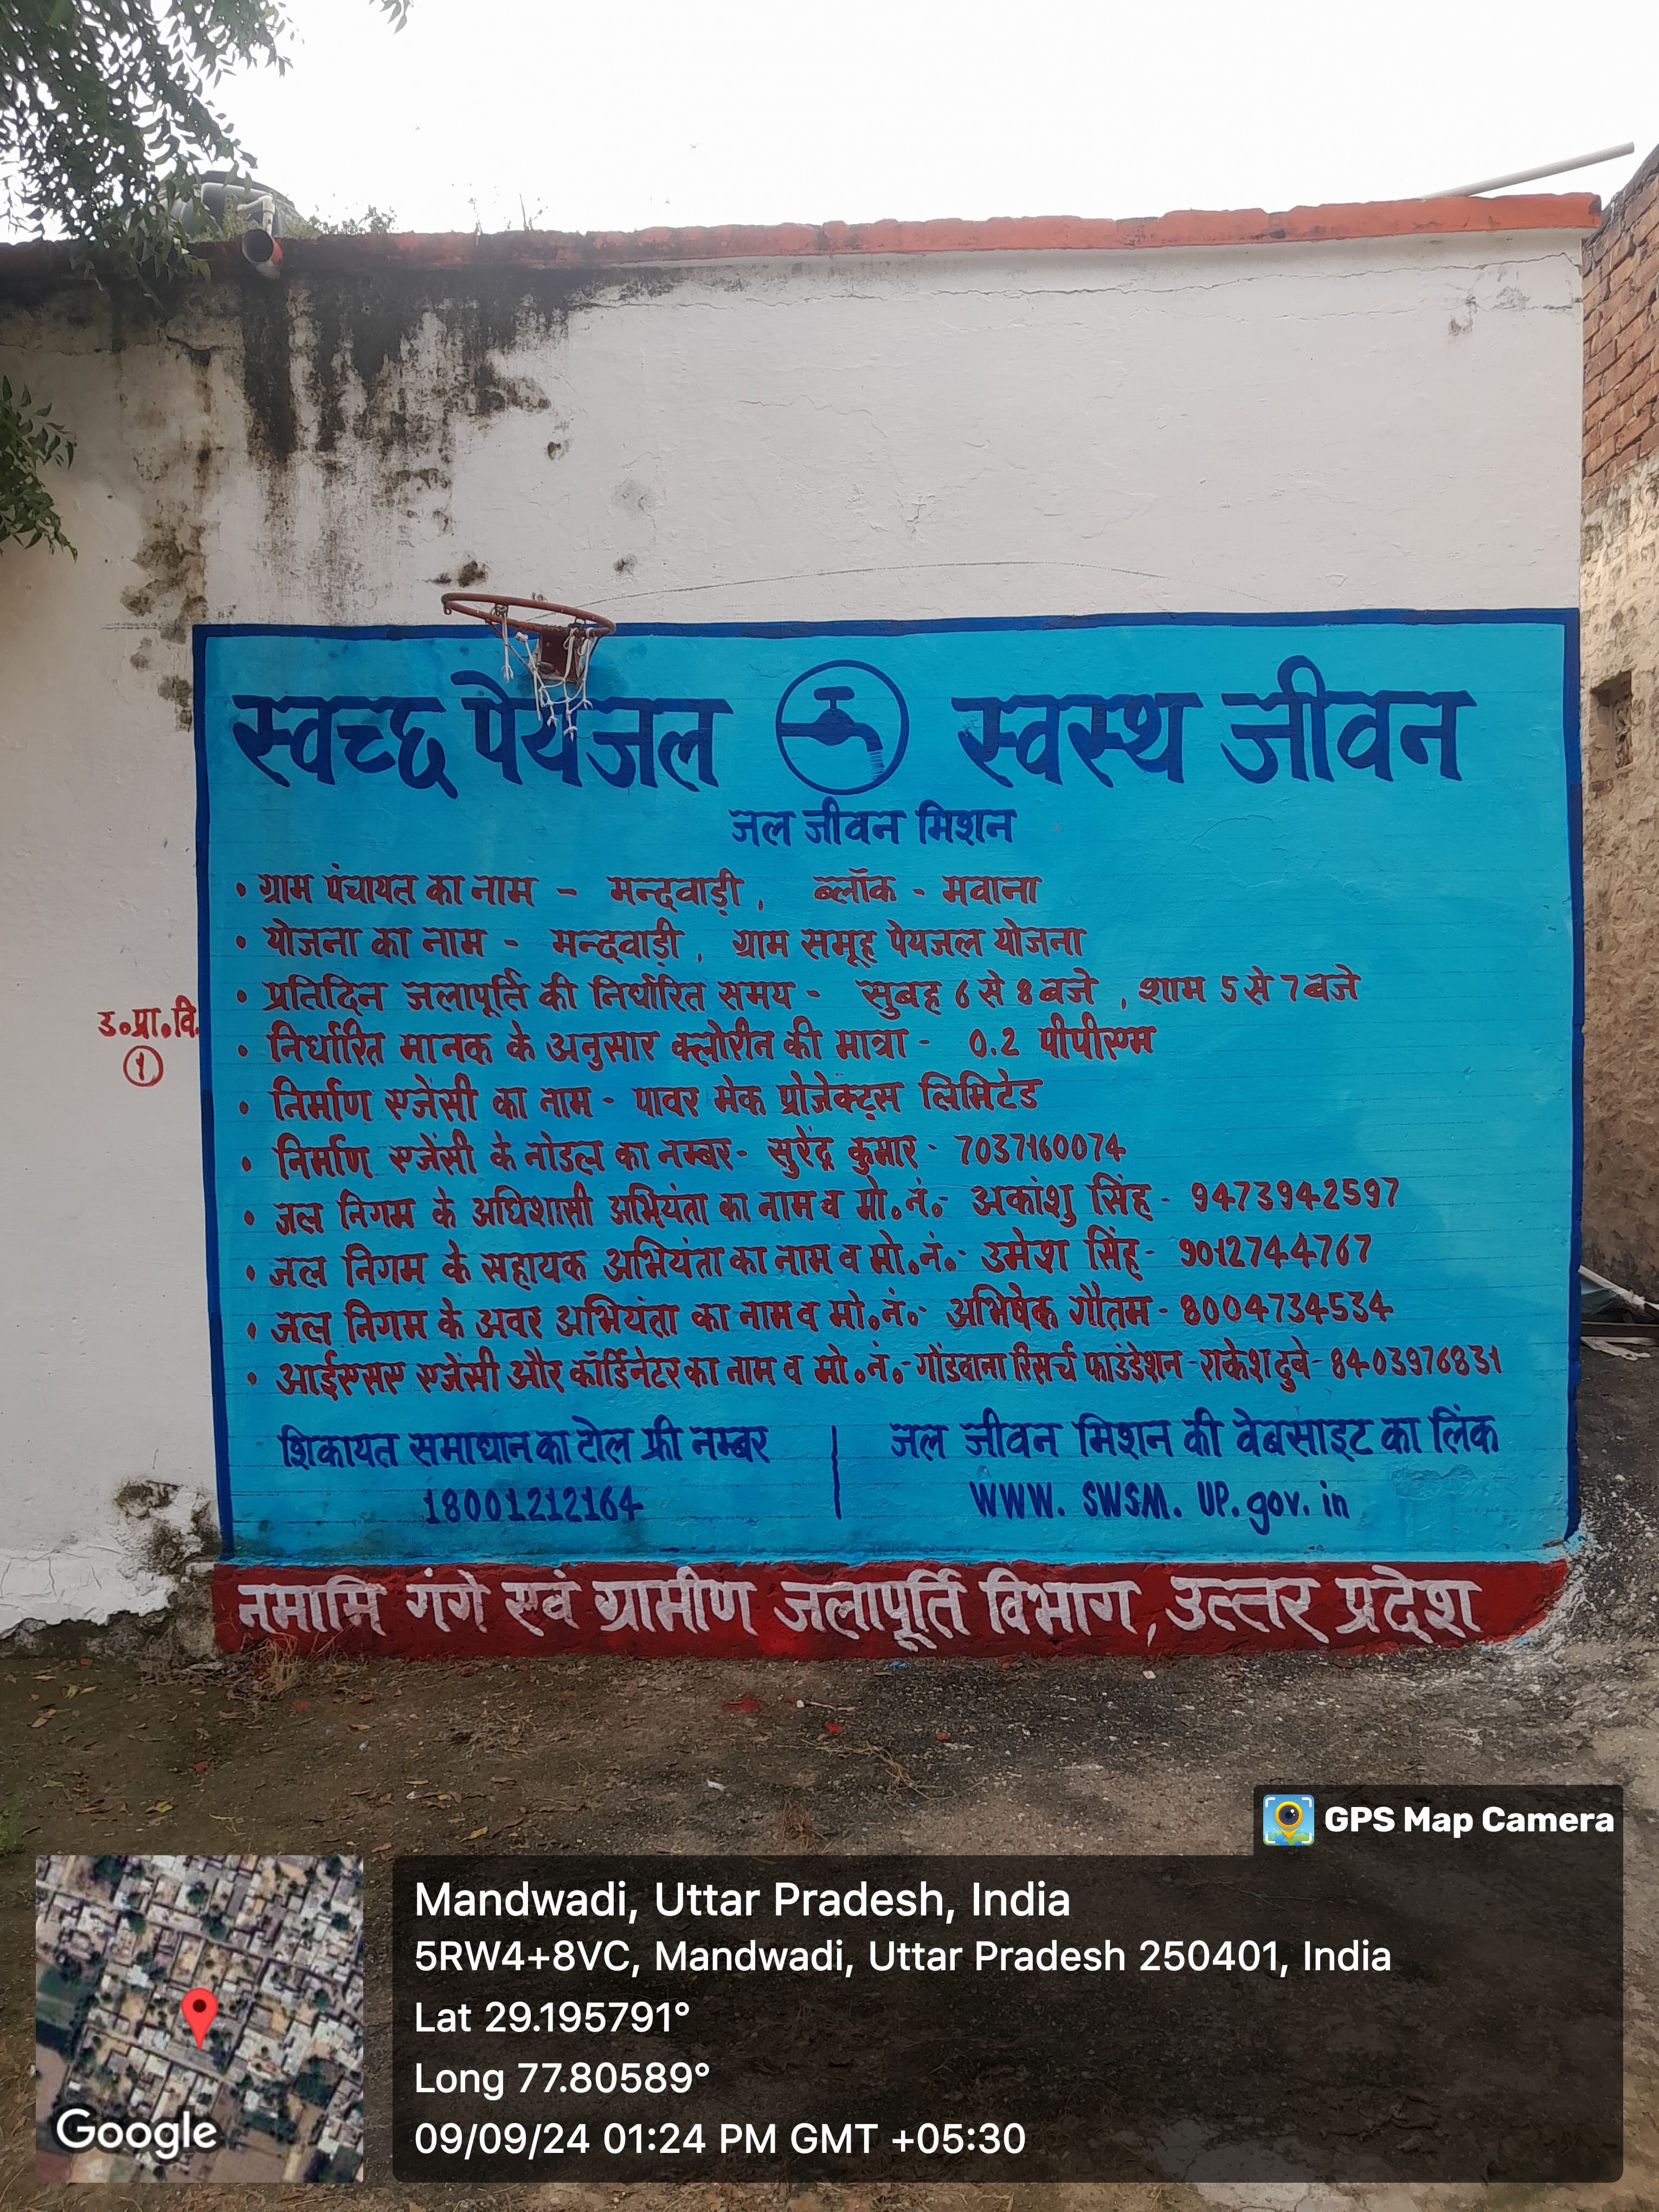 स्वच्छ पेयजल स्वस्थ जीवन
जल जीवन मिशन
• ग्राम पंचायत का नाम - मन्दवाड़ी, ब्लॉक - मवाना
• योजना का नाम - मन्दवाड़ी, ग्राम समूह पेयजल योजना
• प्रतिदिन जलापूर्ति की निर्धारित समय - सुबह 6 से 8 बजे, शाम 5 से 7 बजे
• निर्धारित मानक के अनुसार क्लोरीन की मात्रा - 0.2 पीपीएम
• निर्माण एजेंसी का नाम - पावर मेक प्रोजेक्ट्स लिमिटेड
• निर्माण एजेंसी के नोडल का नम्बर- सुरेंद्र कुमार - 7037160074
• जल निगम के अधिशासी अभियंता का नाम व मो॰नं॰- अकांशु सिंह - 9473942597
• जल निगम के सहायक अभियंता का नाम व मो॰नं॰- उमेश सिंह - 9012744767
• जल निगम के अवर अभियंता का नाम व मो॰नं॰- अभिषेक गौतम - 8004734534
• आईएसए एजेंसी और कॉर्डिनेटर का नाम व मो॰नं॰- गोंडवाना रिसर्च फाउंडेशन - राकेश दुबे - 8403976831
शिकायत समाधान का टोल फ्री नम्बर
18001212164
जल जीवन मिशन की वेबसाइट का लिंक
WWW. SWSM. UP. gov. in
नमामि गंगे एवं ग्रामीण जलापूर्ति विभाग, उत्तर प्रदेश
उ॰प्रा॰वि.
१
GPS Map Camera
Mandwadi, Uttar Pradesh, India
5RW4+8VC, Mandwadi, Uttar Pradesh 250401, India
Lat 29.195791°
Long 77.80589°
09/09/24 01:24 PM GMT +05:30
Google